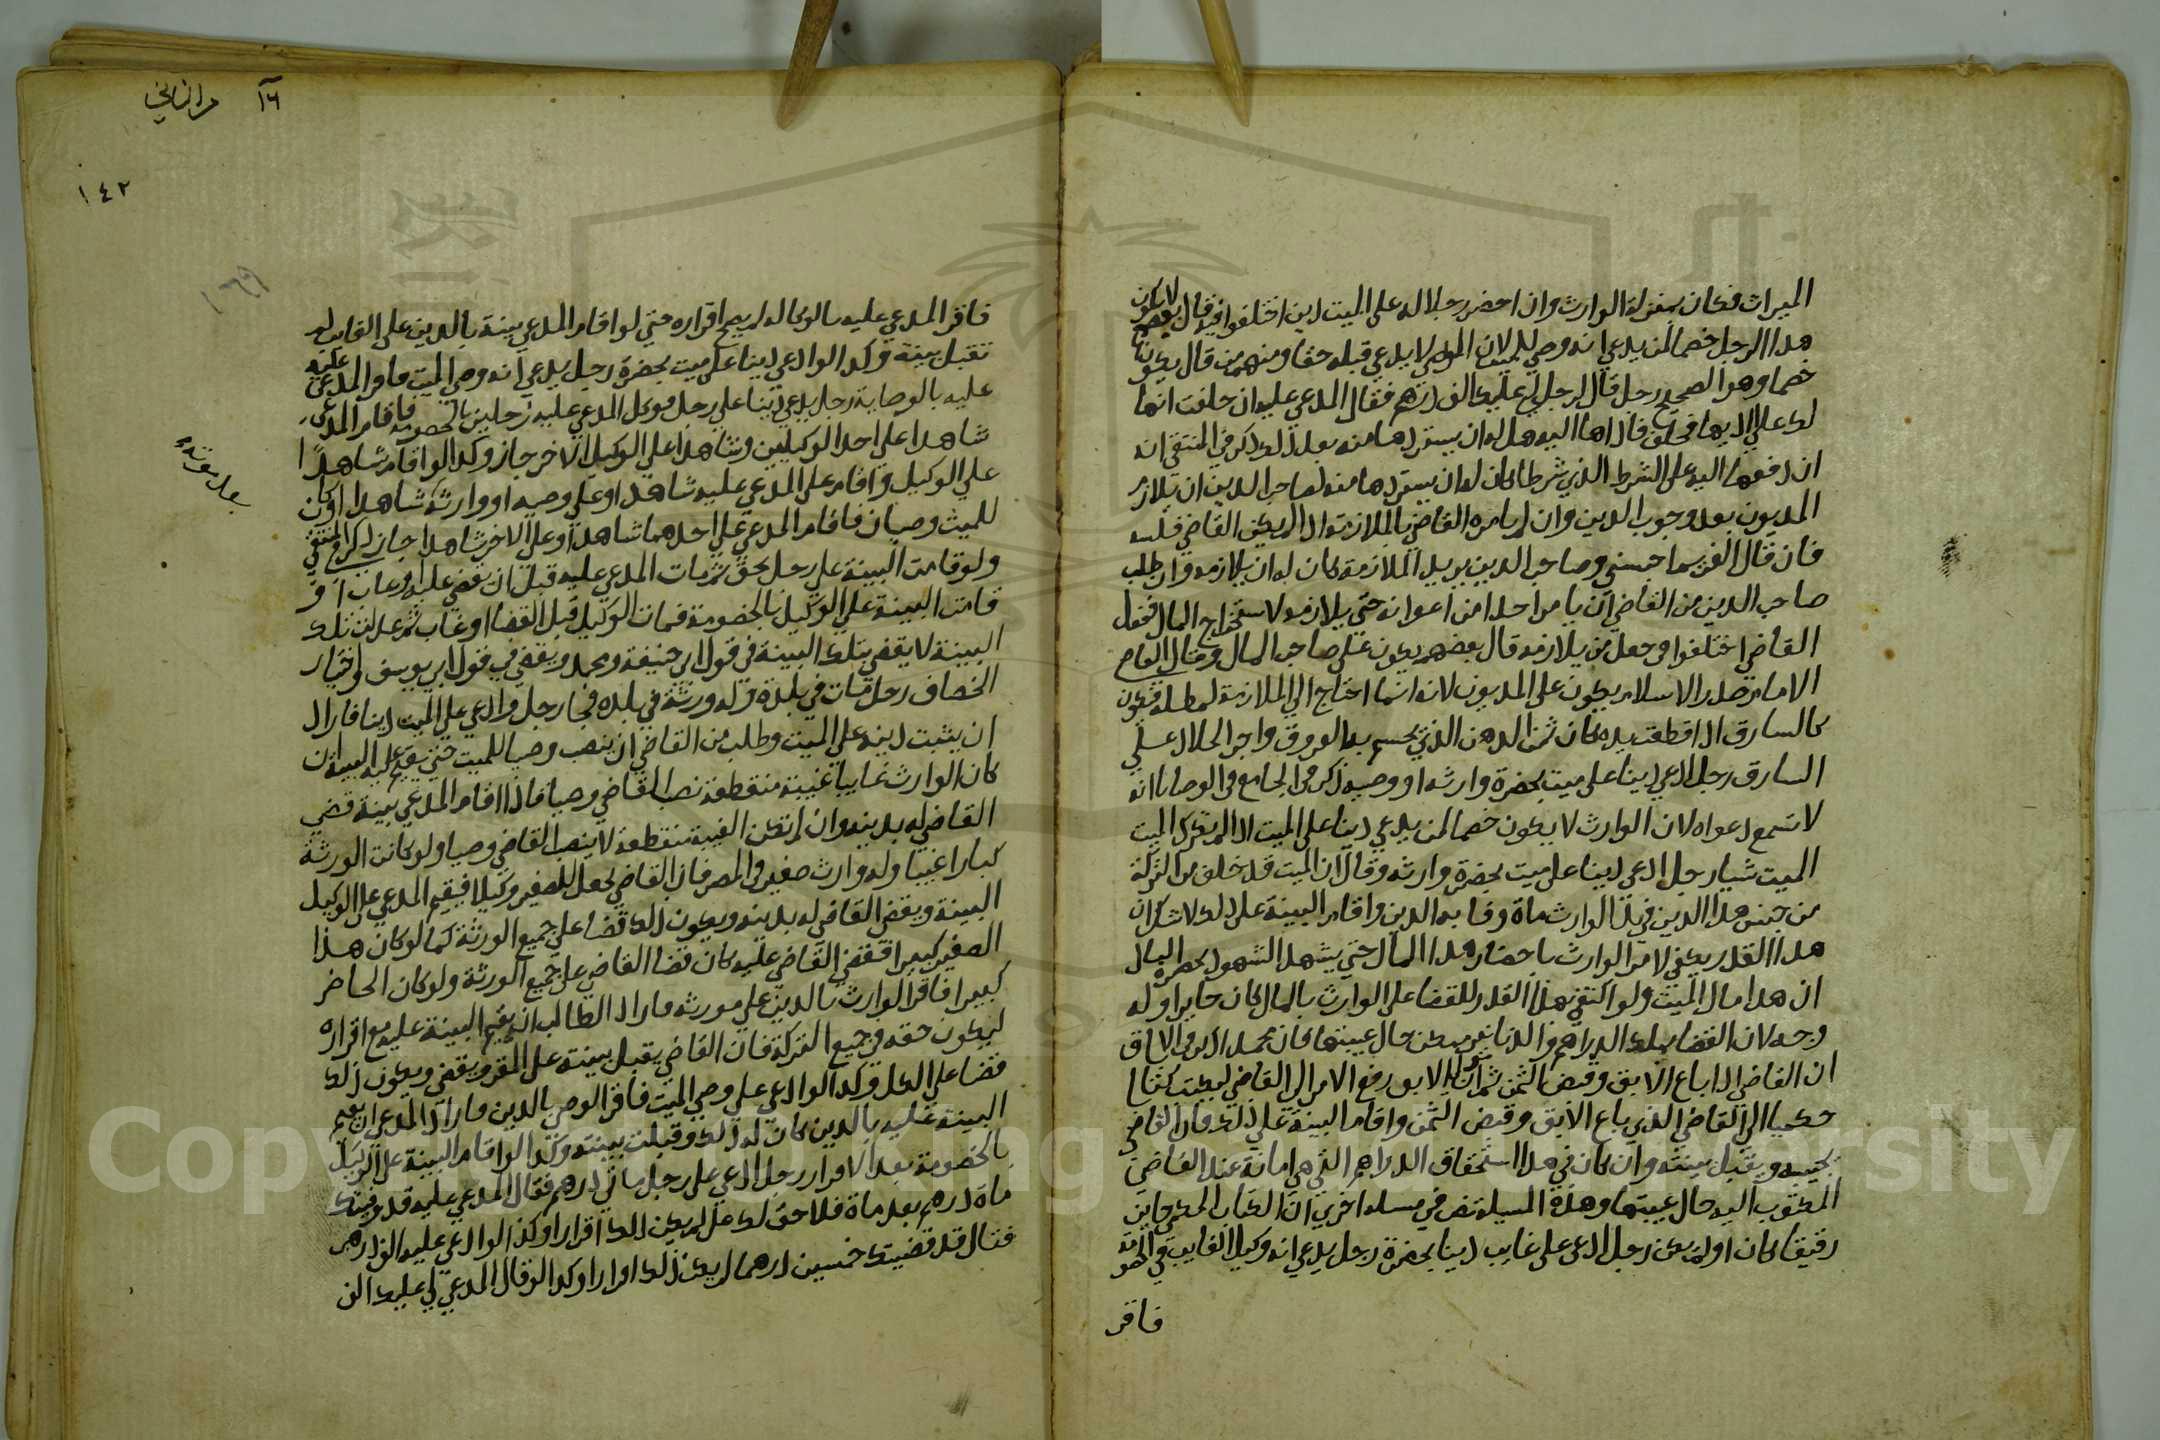 الميراث فكان بمنزلة الوارث وان احضر رجلا له على الميت دين اختلفوا فيه قال بعضهم لا يكون
هذا الرجل خصما لمن يدعي انه وصي الميت لان الموصي لا يدعي قبله حقا ومنهم من قال يكون
خصما وهو الصحيح رجل قال لرجل لي عليك الف درهم فقال المدعي عليه ان حلفت انها
لك علي اديتها فحلف فاداها اليه هل له ان يستردها منه بعد ذلك ذكر في المنتقى انه
ان دفعها اليه على الشرط الذي شرطا كان له ان يستردها منه لصاحب الدين ان يلازم
المديون بعد وجوب الدين وان لم يامره القاضي بالملازمة اذا لم يكن القاضي فلسه
فان قال الغريم احبسني وصاحب الدين يريد الملازمة كان له ان يلازمه وان طلب
صاحب الدين من القاضي ان يامر احدا من اعوانه حتى يلازمه لاستخراج المال ففعل
القاضي اختلفوا في جعل من يلازمه قال بعضهم يكون على صاحب المال وقال القاضي
الامام صدر الاسلام يكون على المديون لانه انما احتاج الي الملازمة لمطله فيكون
كالسارق اذا قطعت يده كان ثمن الدهن الذي يحسم به العروق واجر الجلاد على
السارق رجل ادعي دينا على ميت بحضرة وارثه او وصيه ذكر في الجامع في الوصايا انه
لا تسمع دعواه لان الوارث لا يكون خصما لمن يدعي دينا على الميت اذا لم يترك الميت
الميت شيا رجل ادعى دينا على ميت بحضرة وارثه وقال ان الميت قد خلف من التركة
من جنس هذا الدين في يد الوارث ماة وفا به الدين واقام البينة على ذلك لا شك ان
هذا القدر يكفي لامر الوارث باحضار هذا المال حتي يشهد الشهود بحضرة المال
ان هذا مال الميت ولو اكتفى هذا القدر للقضا على الوارث بالمال كان جايزا وله
وجه لان القضا بتلك الدراهم والدنانير ممكن حال غيبتها فان محمدا ذكر في الاباق
ان القاضي اذا باع الابق وقبض الثمن ثم ان مولى الابق رفع الامر الى القاضي ليكتب كتابا
حكميا الى القاضي الذي باع الابق وقبض الثمن واقام البينة على ذلك فان القاضي
يجيبه ويقبل بينته وان كان في هذا استحقاق الدراهم التي هي امانة عند القاضي
المكتوب اليه حال غيبتها وهذه المسيلة نص في مسلة اخرى ان الكتاب الحكمي جايز
رقيقا كان او لم يكن رجل ادعى على غايب دينا بحضرة رجل يدعي انه وكيل الغايب في الخصومة
فاقر
١٦ من الثاني
١٤٢
١٣٩
فاقر المدعي عليه بالوكالة لم يصح اقراره حتي لو اقام المدعي بينة بالدين على الغايب لم
تقبل بينته وكذا لو ادعي دينا على ميت بحضرة رجل يدعي انه وصي الميت فاقر المدعي عليه
عليه بالوصاية رجل يدعي دينا على رجل فوكل المدعي عليه رجلين بالخصومة فاقام المدعي
شاهدا على احد الوكيلين وشاهدا على الوكيل الاخر جاز وكذا لو اقام شاهدا
على الوكيل واقام على المدعي عليه شاهدا او على وصيه او وارثه شاهدا او كان
للميت وصيان فاقام المدعي على احدهما شاهدا وعلى الاخر شاهدا جاز ذكره في المنتقى
ولو قامت البينة على رجل بحق ثم مات المدعي عليه قبل ان يقضي عليه او غاب او
قامت البينة على الوكيل بالخصومة فمات الوكيل قبل القضا او غاب ثم عدلت تلك
البينة لا يقضي بتلك البينة في قول ابي حنيفة ومحمد ويقضي في قول ابي يوسف واختيار
الخصاف رجل مات في بلدة وله ورثة في بلده فجا رجل وادعي على الميت دينا فاراد
ان يثبت دينه على الميت وطلب من القاضي ان ينصب وصيا للميت حتى يقيم عليه البينة ان
كان الوارث غايبا غيبة منقطعة نصب القاضي وصيا فاذا اقام المدعي بينة قضى
القاضي له بدينه وان لم تكن الغيبة منقطعة لا ينصب القاضي وصيا ولو كانت الورثة
كبارا غيبا وله وارث صغير في المصر فان القاضي يجعل للصغير وكيلا فيقيم المدعي على الوكيل
البينة ويقضي القاضي له بدينه ويكون ذلك قضا على جميع الورثة كما لو كان هذا
الصغير كبيرا فقضى القاضي عليه كان قضا القاضي على جميع الورثة ولو كان الحاضر
كبيرا فاقر الوارث بالدين على مورثه فاراد الطالب ان يقيم البينة عليه مع اقراره
ليكون حقه في جميع التركة فان القاضي يقبل بينته على المقر ويقضي ويكون ذلك
قضا على الكل وكذا لو ادعي على وصي الميت فاقر الوصي بالدين فاراد المدعي ان يقيم
البينة عليه بالدين كان له ذلك وقبلت بينته وكذا لو اقام البينة على الوكيل
بالخصومة بعد الاقرار رجل ادعي على رجل مائي درهم فقال المدعي عليه قد قضيتك
ماة درهم بعد ماة فلا حق لك علي لم يكن ذلك اقرارا وكذا لو ادعي عليه الف درهم
فقال قد قضيتك خمسين درهما لم يكن ذلك اقرارا وكذا لو قال المدعي لي عليك الف